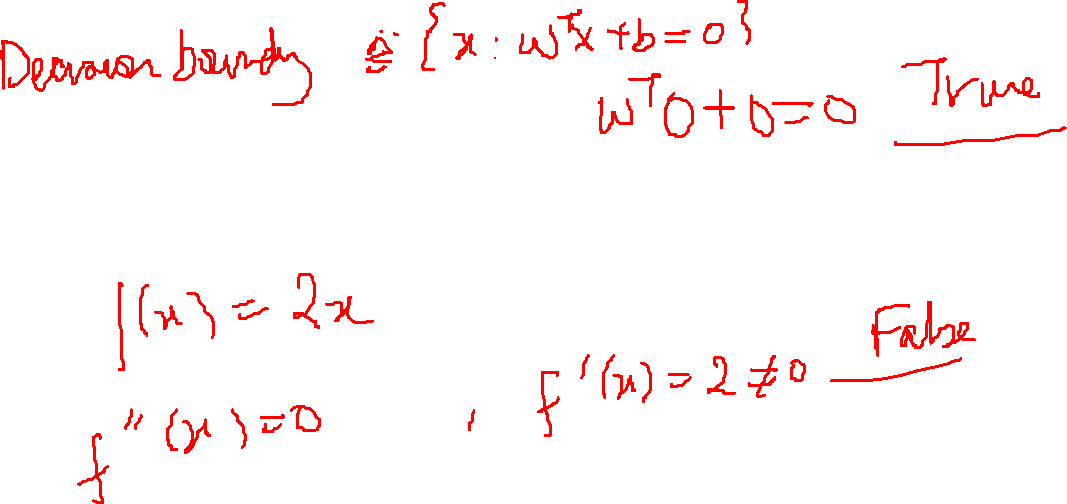 Decision boundary ≜ {x : wᵀx + b = 0}
wᵀ0 + b = 0 True
f(x) = 2x
f''(x) = 0 , f'(x) = 2 ≠ 0 False